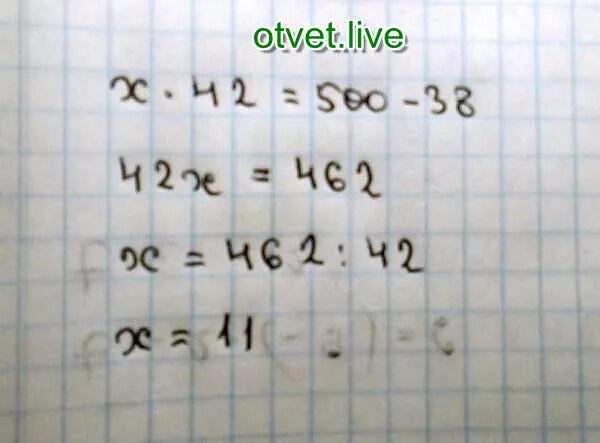 otvet.live
x · 42 = 500 - 38
42x = 462
x = 462 : 42
x = 11